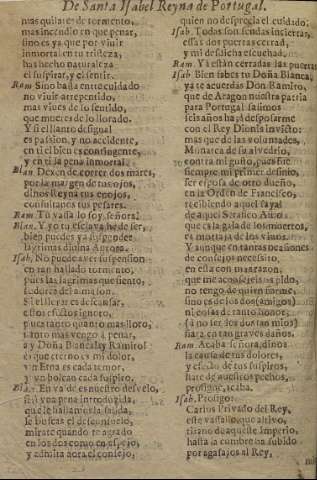 De Santa Isabel Reyna de Portugal.
mas quilates de tormento,
mas incendio en que penar,
sino es ya que por vivir
inmortal en tu tristeza,
has hecho naturaleza
el suspirar, y el sentir.
Ram. Sino basta entre cuidado
no vivir arrepentido,
mas vives de lo sentido,
que mueres de lo llorado.
Y si el llanto desigual
es passion, y no accidente,
en ti el bien es contingente,
y en ti la pena inmortal.
Blan. Dexen de correr dos mares,
por la margen de tus ojos,
di nos Reyna tus enojos,
consultanos tus pesares.
Ram. Tu vassallo soy, señora.
Blan. Y yo tu esclava he de ser,
bien puedes ya suspender
lagrimas divina Aurora.
Isab. No puede aver suspension
en tan hallado tormento,
pues las lagrimas que siento,
sudores del alma son.
Si el llorar es descansar,
estos efectos ignoro,
pues tanto quanto mas lloro,
tanto mas vengo a penar,
ay Doña Blanca! ay Ramiro!
es que eterno es mi dolor,
un Etna es cada temor,
y un bolcan cada suspiro.
Blan. En va de es nuestro desvelo,
si es una pena introducida,
que le hallamos la salida,
se busca el desconsuelo,
mirate quando te agrado
en los dos como en espejo,
y admita aora el consejo,
quien no desprecia el cuidado.
Isab. Todas son sendas inciertas,
essas dos puertas cerrad,
y mi desdicha escuchad.
Ram. Ya están cerradas las puertas
Isab. Bien sabes tu Doña Blanca,
ya te acuerdas Don Ramiro,
que de Aragon nuestra patria
para Portugal salimos
seis años ha, a desposarme
con el Rey Dionis invicto:
mas que de las voluntades,
Monarca de su alvedrio,
contra mi gusto, pues fue
siempre mi primer desinio,
ser esposa de otro dueño,
en la Orden de Francisco,
recibiendo aquel sayal
de aquel Serafico Asilo
que es la gala de los muertos,
es mortaja de los vivos.
Y aunque en tantas ocasiones
de consejos necessito,
en esta con mas razon,
que me aconsejeis os pido,
no tengo de quien fiarme,
sino es de los dos (amigos)
ni cosas de tanto honor,
(a no ser los dos tan mios)
fiara con tan graves daños.
Ram. Acaba, señora, dinos
la causa de tus dolores,
y efecto de tus suspiros,
fiate de nuestros pechos,
prosigue, acaba.
Isab. Prosigo:
Carlos Privado del Rey,
este vassallo, que altivo,
tirano de aqueste Imperio,
hasta la cumbre ha subido
por agasajos al Rey,